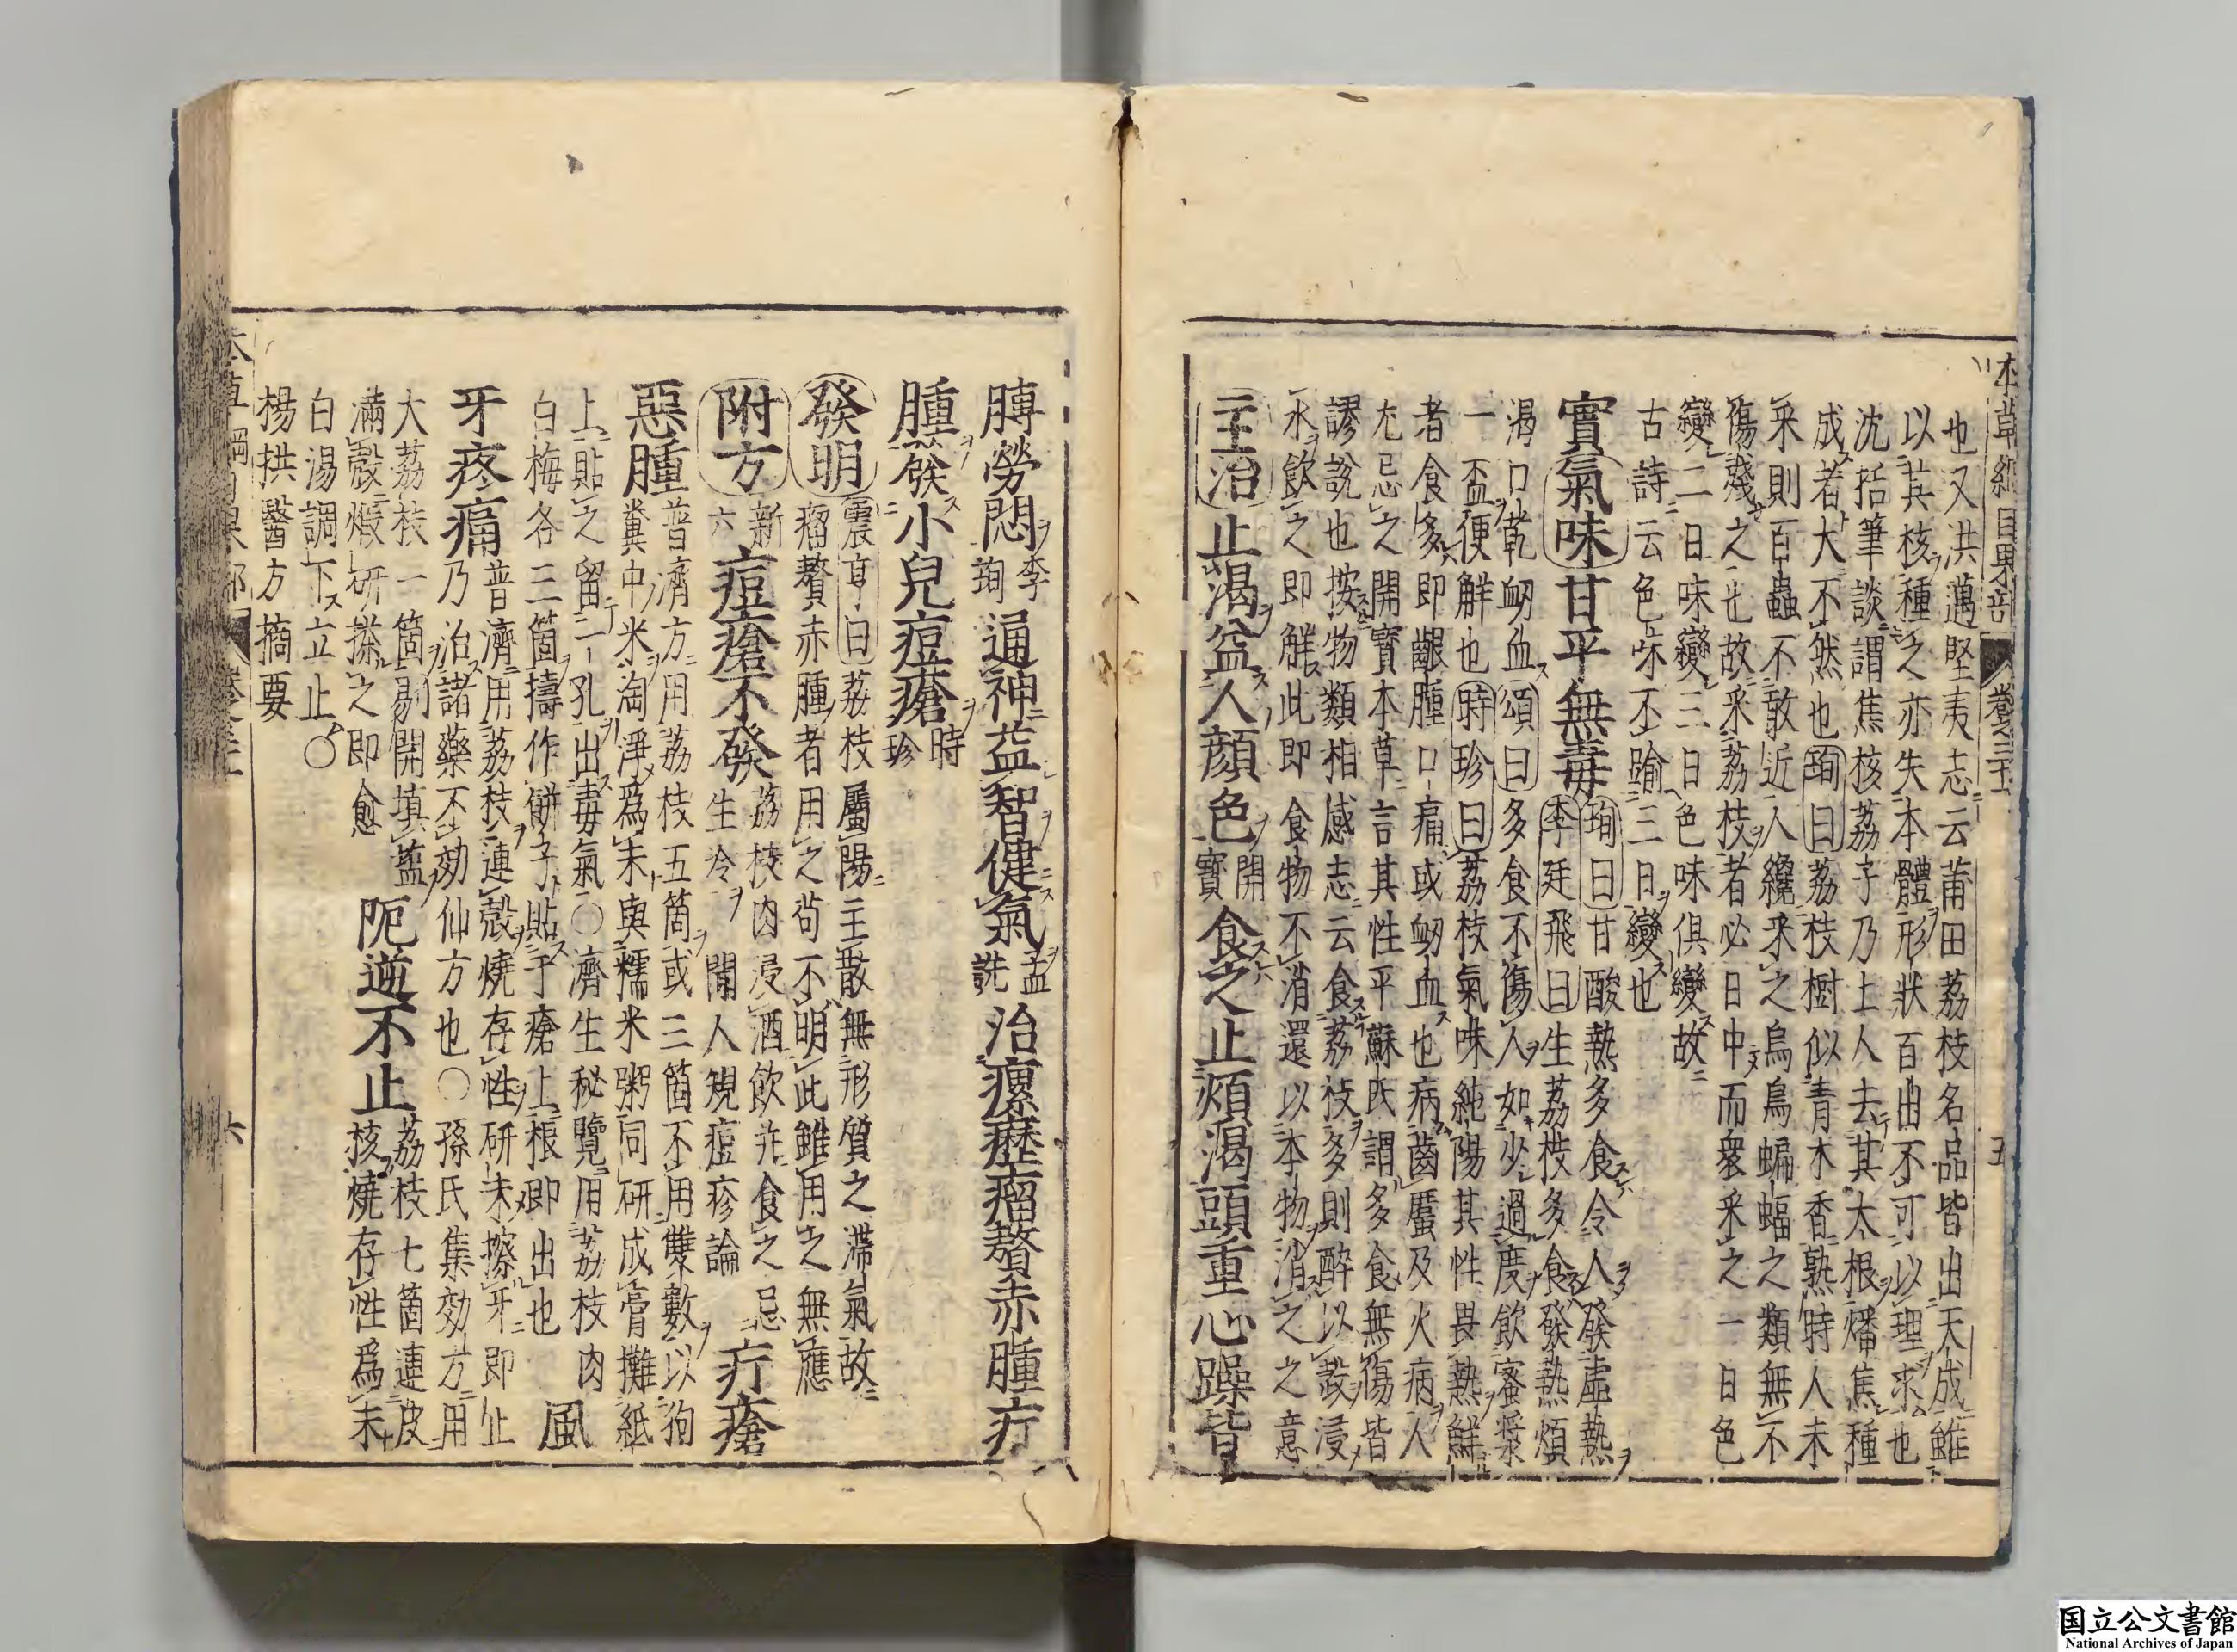 本草綱目果部 卷三十一 五
也又洪邁夷堅志云莆田荔枝名品皆出天成雖
以其核種之亦失本體形狀百曲不可以理求也
沈括筆談謂焦核荔子乃土人去其大根燔焦種
成者大不然也珣曰荔枝樹似青木香熟時人未
采則百蟲不敢近人纔采之烏鳥蝙蝠之類無不
傷殘之也故采荔枝者必日中而衆采之一日色
變二日味變三日色味俱變故
古詩云色味不踰三日變也
實氣味甘平無毒珣曰甘酸熱多食令人發虛熱
李廷飛曰生荔枝多食發熱煩
渴口乾衂血頌曰多食不傷人如少過度飲蜜漿
一盃便解也時珍曰荔枝氣味純陽其性畏熱鮮
者食多即齦腫口痛或衂血也病齒䘌及火病人
尤忌之開寶本草言其性平蘇氏謂多食無傷皆
謬說也按物類相感志云食荔枝多則醉以殼浸
水飲之即解此即食物不消還以本物消之之意
主治止渴益人顔色開寶食之止煩渴頭重心躁背
膊勞悶李珣通神益智健氣孟詵治瘰癧瘤贅赤腫疔
腫發小兒痘瘡時珍
發明震亨曰荔枝屬陽主散無形質之滯氣故
瘤贅赤腫者用之苟不明此雖用之無應
附方新六痘瘡不發荔枝肉浸酒飲並食之忌生冷聞人規痘疹論疔瘡
惡腫普濟方用荔枝五箇或三箇不用雙數以狗
糞中米淘淨爲末與糯米粥同研成膏攤紙
上貼之留一孔出毒氣○濟生秘覽用荔枝肉
白梅各三箇擣作餅子貼于瘡上根即出也風
牙疼痛普濟用荔枝連殼燒存性研末擦牙即止
乃治諸藥不効仙方也○孫氏集効方用
大荔枝一箇剔開填鹽
滿殼煅研搽之即愈呃逆不止荔枝七箇連皮核燒存性爲末
白湯調下立止○
楊拱醫方摘要
本草綱目果部 卷三十一 六
国立公文書館
National Archives of Japan